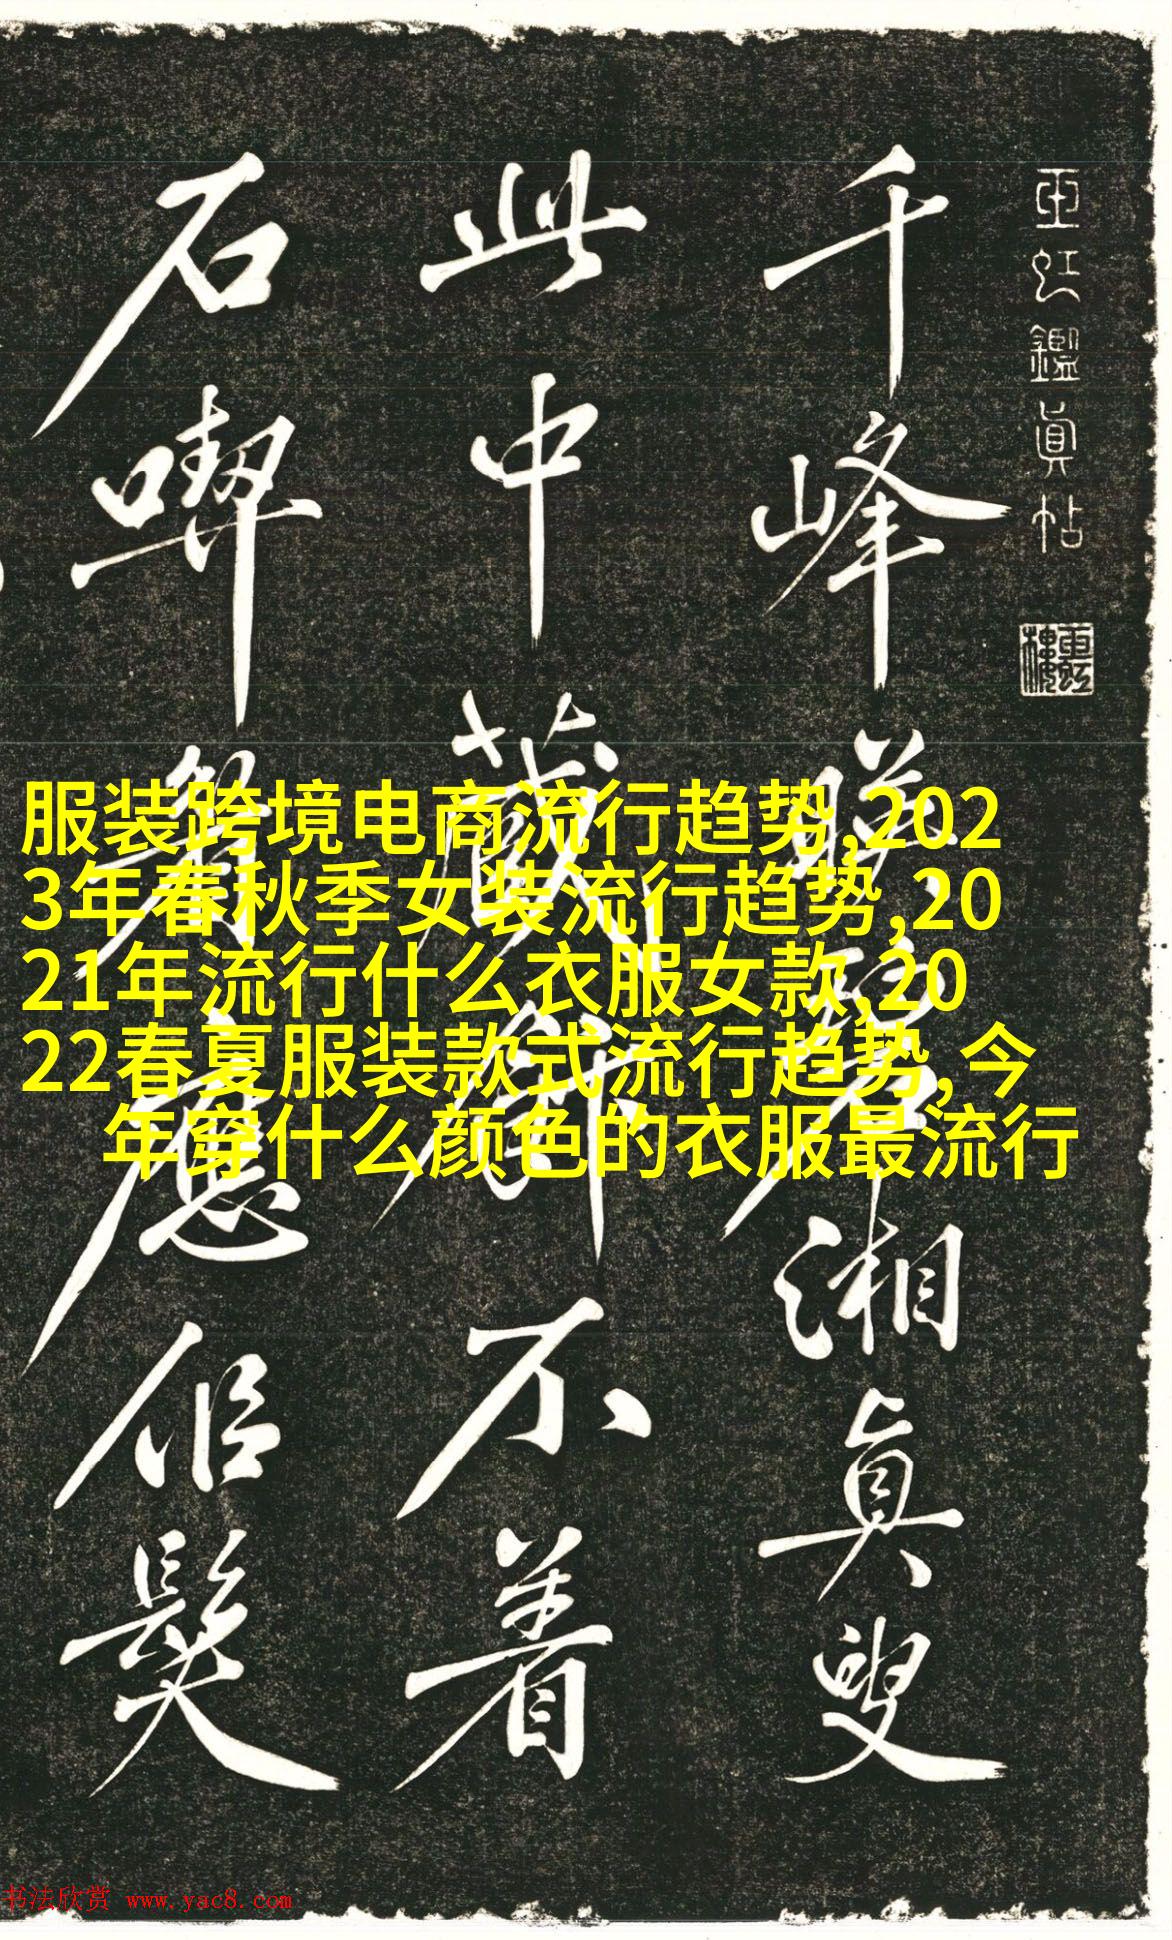 玉虹鑑真帖
玉虹樓
千峰映碧湘真叟
此中藏餅不着
石喫眉應佀髮
服装跨境电商流行趋势,202
3年春秋季女装流行趋势,20
21年流行什么衣服女款,20
22春夏服装款式流行趋势,今
年穿什么颜色的衣服最流行
书法欣赏 www.yac8.com